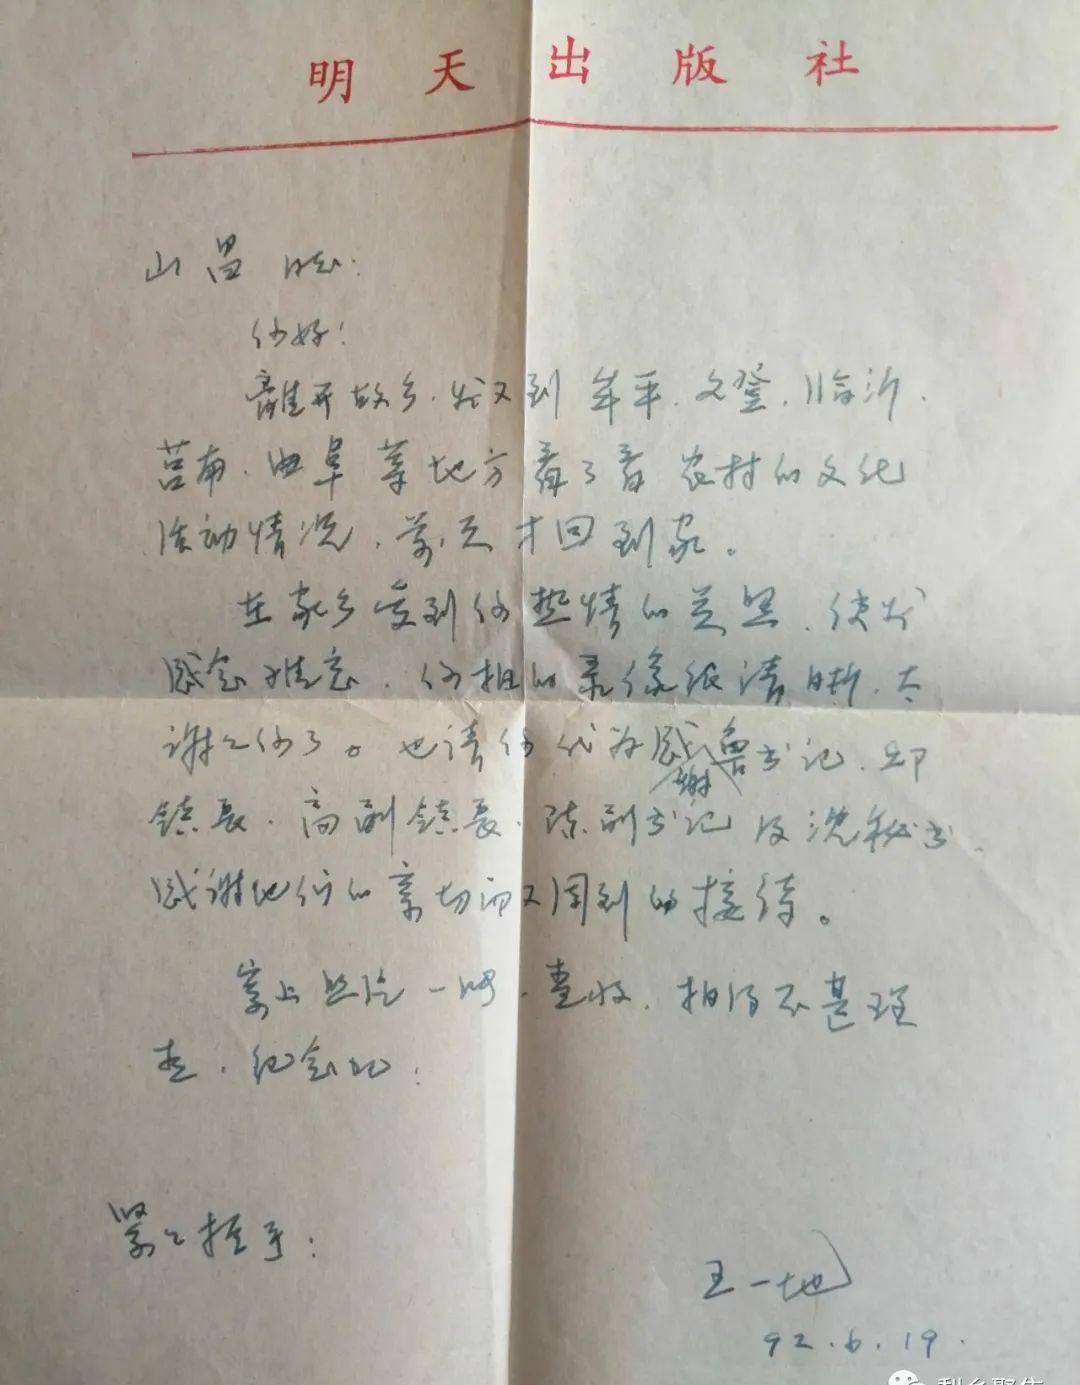 明天出版社
山昌同志:
你好!
離开故乡,我又到牟平、文登、临沂、
莒南、曲阜等地方看了看农村的文化
活动情况,前天才回到家。
在家乡受到你热情的关照,使我
感念难忘,你拍的录像很清晰,太
谢谢你了。也请你代为感谢鲁书记、邹
镇长、高副镇长、陈副书记及冼秘书,
感谢他们的亲切而又周到的接待。
寄上照片一帧,查收,拍得不甚理
想,纪念吧!
紧紧握手!
王一地
92.6.19.
梨乡聚焦